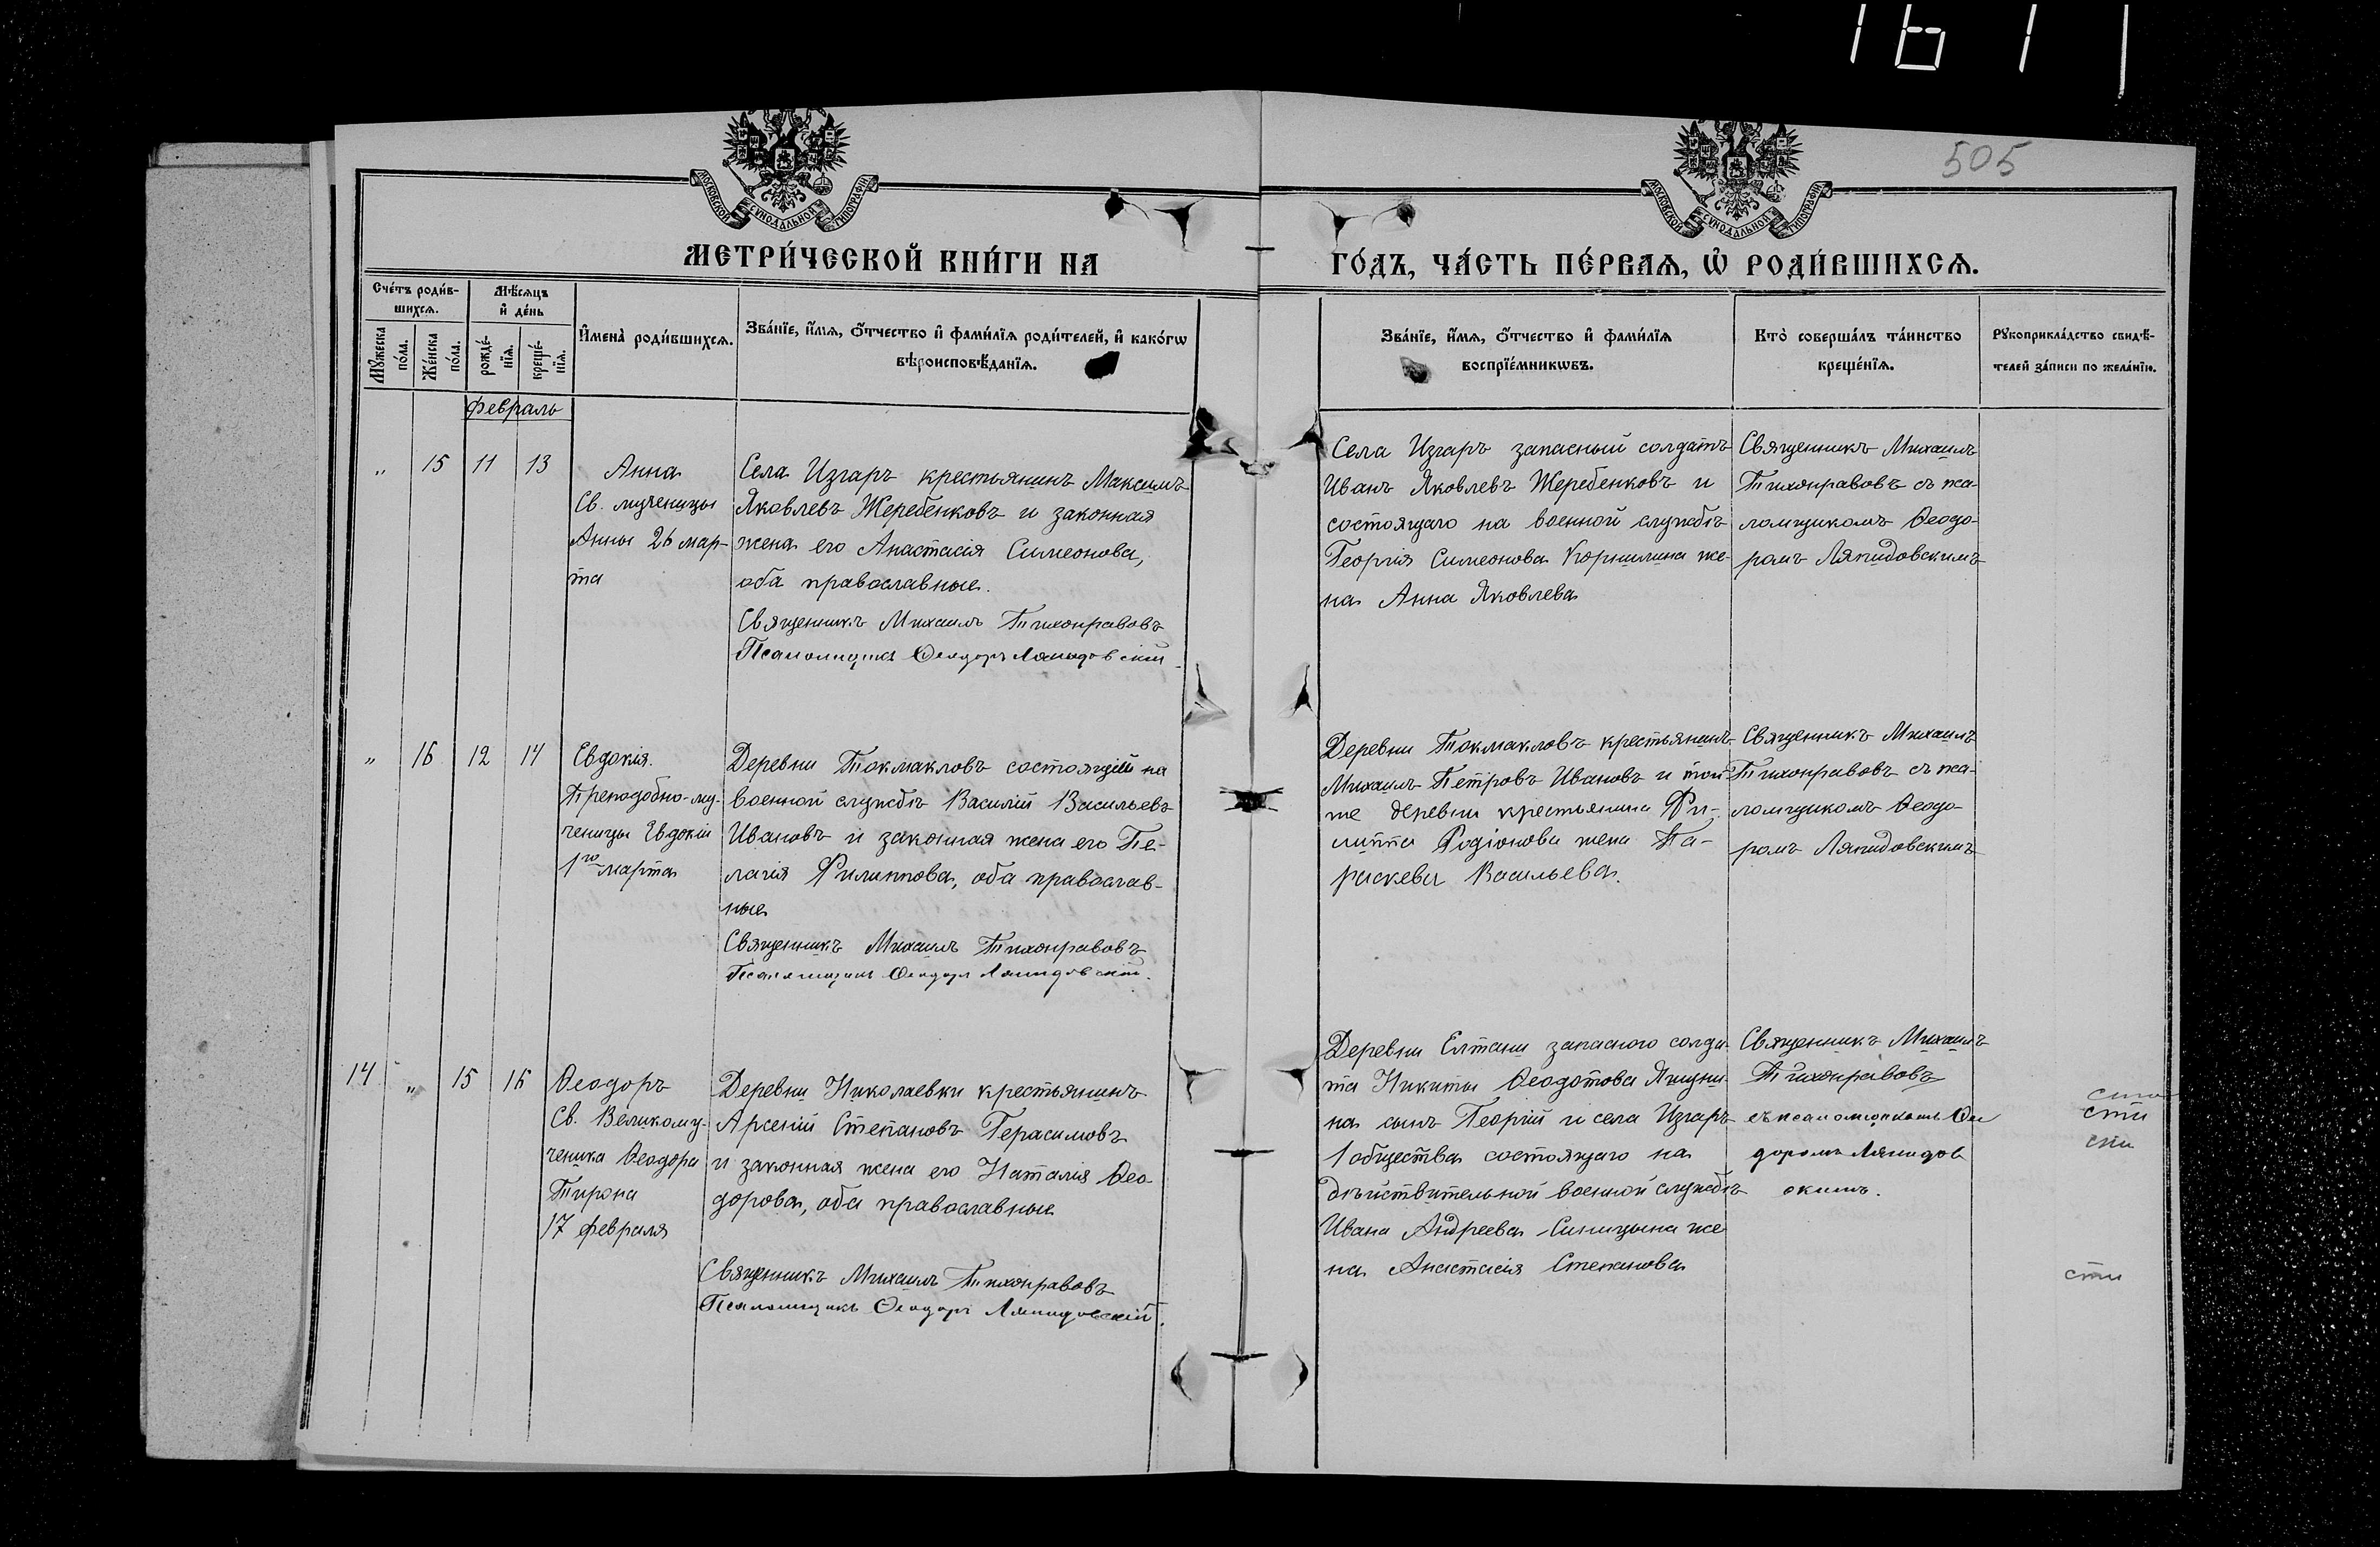 1611
505
МОСКОВСКОЙ СѴНОДАЛЬНОЙ ТИПОГРАФІИ
МОСКОВСКОЙ СѴНОДАЛЬНОЙ ТИПОГРАФІИ
МЕТРИ́ЧЕСКОЙ КНИ́ГИ НА
ГО́ДЪ, ЧА́СТЬ ПЕ́РВАѦ, Ѽ РОДИ́ВШИХСѦ.
Сче́тъ роди́в-
шихсѧ.
Мѣ́сѧцъ
и҆ де́нь
Мꙋ́жеска
по́ла.
Же́нска
по́ла.
рожде́-
нїѧ.
креще́-
нїѧ.
И҆мена̀ роди́вшихсѧ.
Зва́нїе, и҆́мѧ, ѻ҆́тчество и҆ фами́лїѧ роди́телей, и҆ како́гѡ
вѣроисповѣ́данїѧ.
Зва́нїе, и҆́мѧ, ѻ҆́тчество и҆ фами́лїѧ
воспрїе́мникѡвъ.
Кто̀ соверша́лъ та́инство
креще́нїѧ.
Рꙋкоприкла́дство свидѣ́-
телей за́писи по жела́нїю.
Февраль
„ 15 11 13
Анна
Св. мученицы
Анны 26 мар-
та
Села Изгаръ крестьянинъ Максимъ
Яковлевъ Жеребенковъ и законная
жена его Анастасія Симеонова,
оба православные.
Священникъ Михаилъ Тихонравовъ
Псаломщикъ Ѳеодоръ Ляпидовскій
Села Изгаръ запасный солдатъ
Иванъ Яковлевъ Жеребенковъ и
состоящаго на военной службѣ
Георгія Симеонова Корнилина же-
на Анна Яковлева
Священникъ Михаилъ
Тихонравовъ съ пса-
ломщикомъ Ѳеодо-
ромъ Ляпидовскимъ
„ 16 12 14
Евдокія.
Преподобно-му-
ченицы Евдокіи
1го марта
Деревни Токмакловъ состоящій на
военной службѣ Василій Васильевъ
Ивановъ и законная жена его Пе-
лагія Филиппова, оба православ-
ные
Священникъ Михаилъ Тихонравовъ
Псаломщикъ Ѳеодоръ Ляпидовскій.
Деревни Токмакловъ крестьянинъ
Михаилъ Петровъ Ивановъ и той
же деревни крестьянина Фи-
липпа Родіонова жена Па-
раскева Васильева.
Священникъ Михаилъ
Тихонравовъ съ пса-
ломщикомъ Ѳеодо-
ромъ Ляпидовскимъ
14 „ 15 16
Ѳеодоръ
Св. Великому-
ченика Ѳеодора
Тирона
17 февраля
Деревни Николаевки крестьянинъ
Арсеній Степановъ Герасимовъ
и законная жена его Наталія Ѳео-
дорова, оба православные
Священникъ Михаилъ Тихонравовъ
Псаломщикъ Ѳеодоръ Ляпидовскій.
Деревни Елтани запасного солда-
та Никиты Ѳеодотова
на сынъ Георгій и села Изгаръ
1 общества состоящаго на
дѣйствительной военной службѣ
Ивана Андреева Синицына же
на Анастасія Степанова
Священникъ Михаилъ
Тихонравовъ
съ псаломщикомъ Ѳео
доромъ Ляпидов
скимъ.
сти
сти